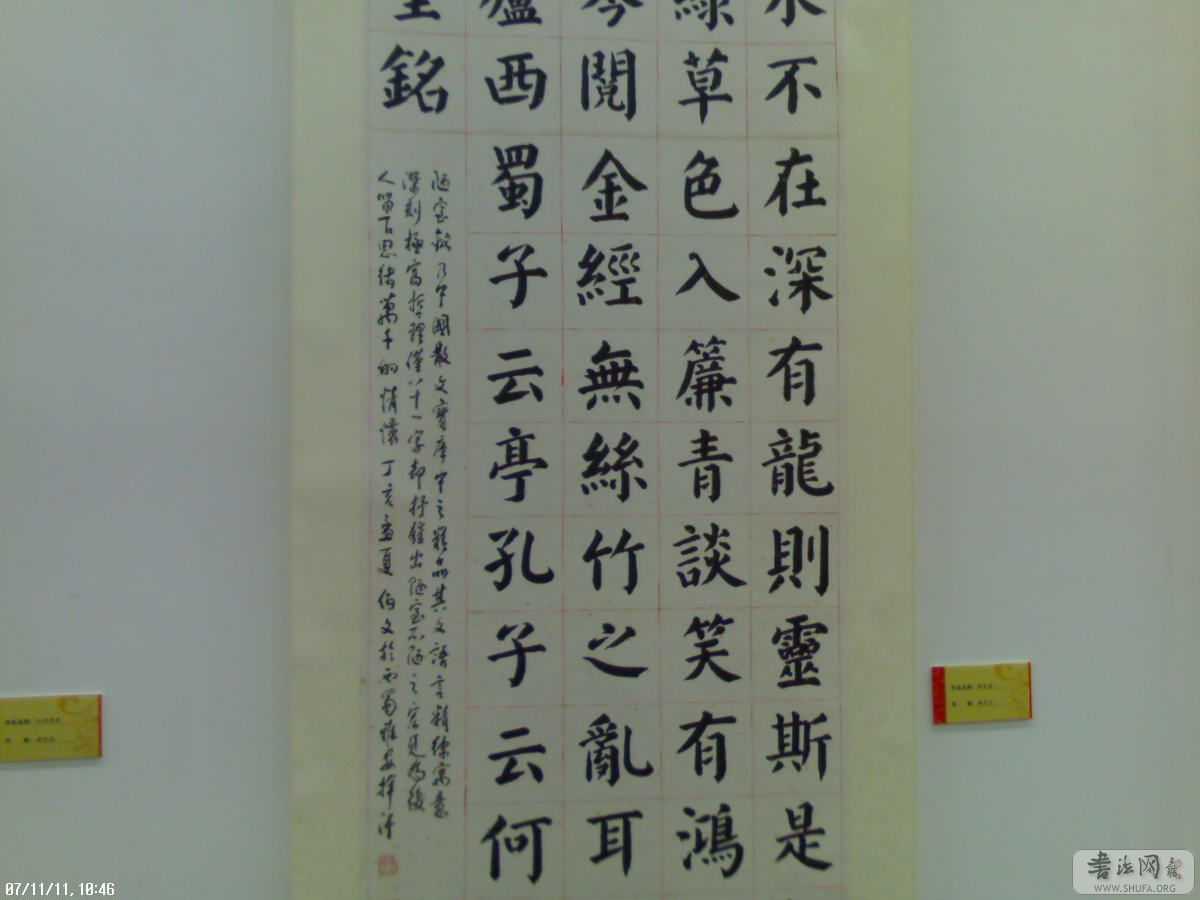 水不在深有龍則靈斯是
綠草色入簾青談笑有鴻
琴閱金經無絲竹之亂耳
廬西蜀子云亭孔子云何
室銘
陋室銘乃中國散文寶庫中之難品其文語言精練寓意
深刻極富哲理僅八十一字却抒發出陋室不陋之室見為後
人留下思緒萬千的情懷丁亥孟夏伯文於西蜀雅安揮汗
07/11/11,10:46
書法网
WWW.SHUFA.ORG